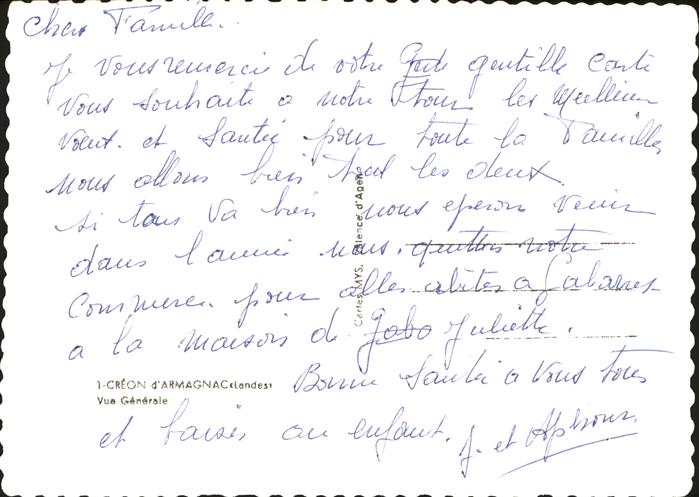 Cher Famille.
Je vous remercie de votre gentille carte
vous souhaite a notre tour les Meilleur
voeut. et Santée pour toute la Familles
nous allons bien tous les deux.
si tous va bien nous eperon venir
dans l'année nous. quittons notre
Commerce. pour aller abites a Gabarret
a la maison de Juliette.
Bonne Santée a vous tous
et baises au enfant. J. et Alphonse.
Cartes MYS, Valence d'Agen
1-CRÉON d'ARMAGNAC (Landes)
Vue Générale